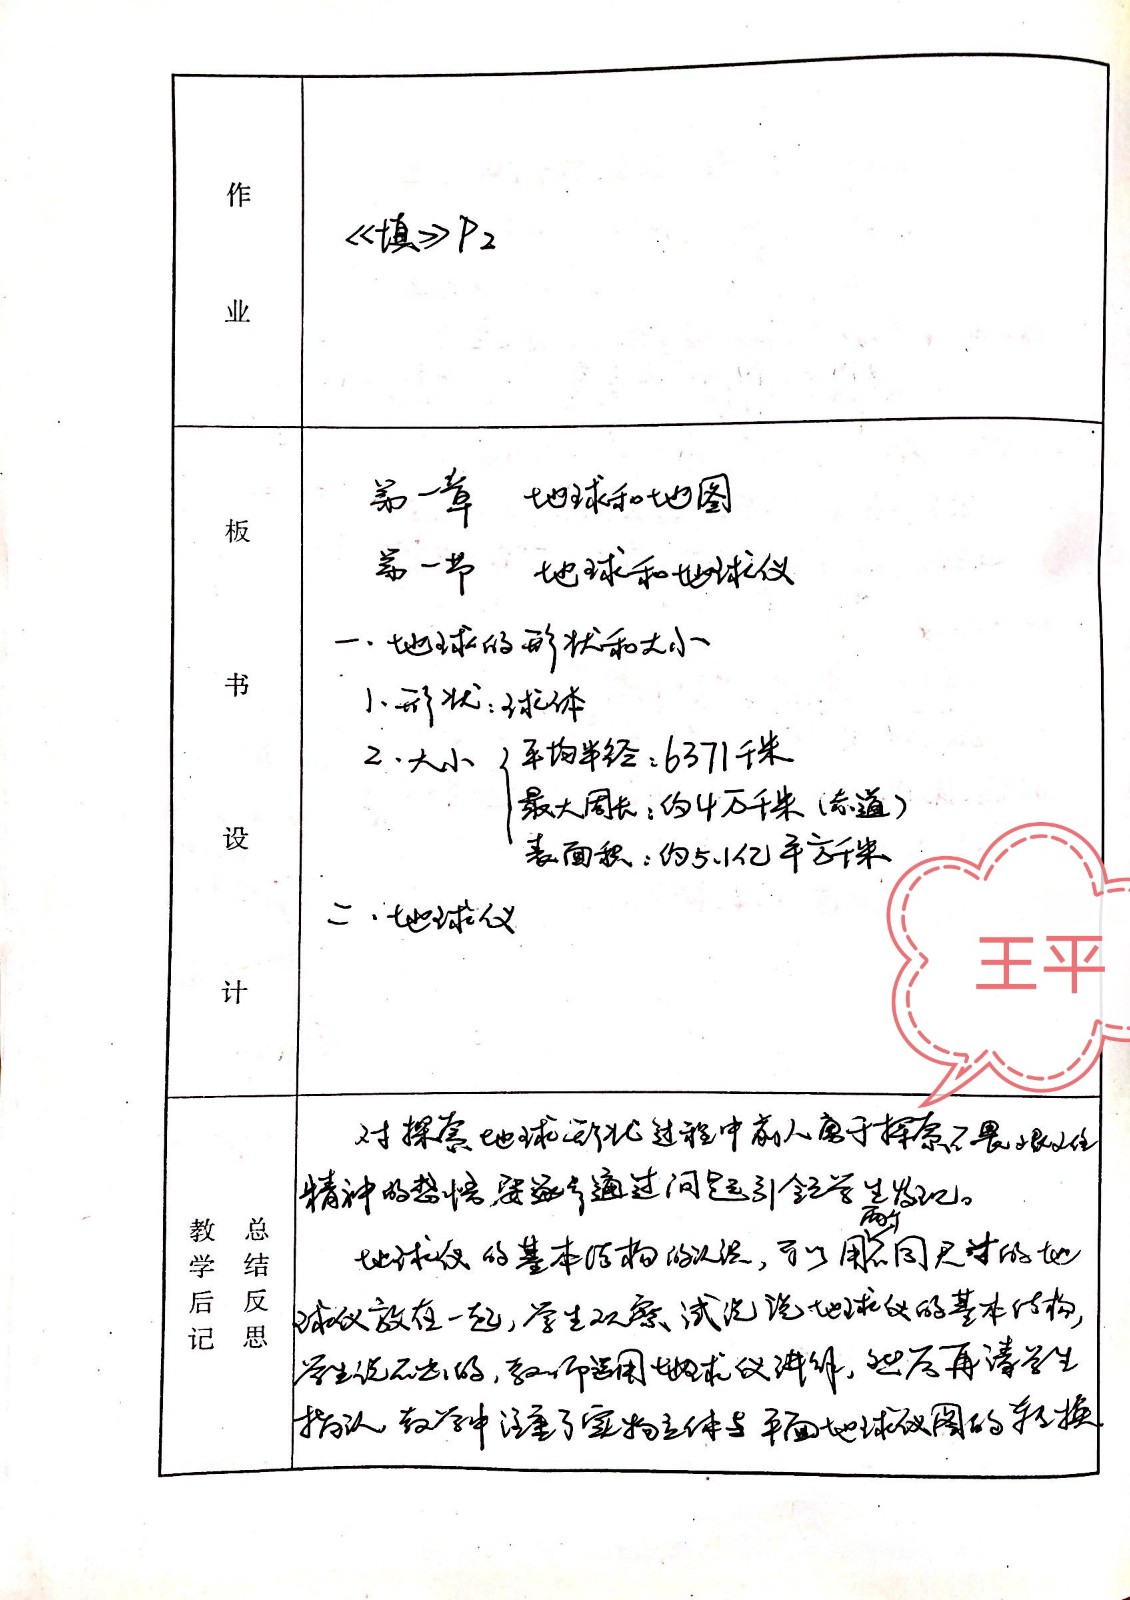 作业
《填》P2
板书设计
第一章 地球和地图
第一节 地球和地球仪
一、地球的形状和大小
1、形状：球体
2、大小 { 平均半径：6371千米
最大周长：约4万千米（赤道）
表面积：约5.1亿平方千米
二、地球仪
王平
教学后记
总结反思
对探索地球形状过程中前人勇于探索不畏艰难
精神的感悟要逐步通过问题引领学生发现。
地球仪的基本结构的认识，可以用两个不同尺寸的地
球仪放在一起，学生观察，试说说地球仪的基本结构，
学生说不出的，教师运用地球仪讲解，然后再请学生
指认 教学中注重了实物立体与平面地球仪图的转换